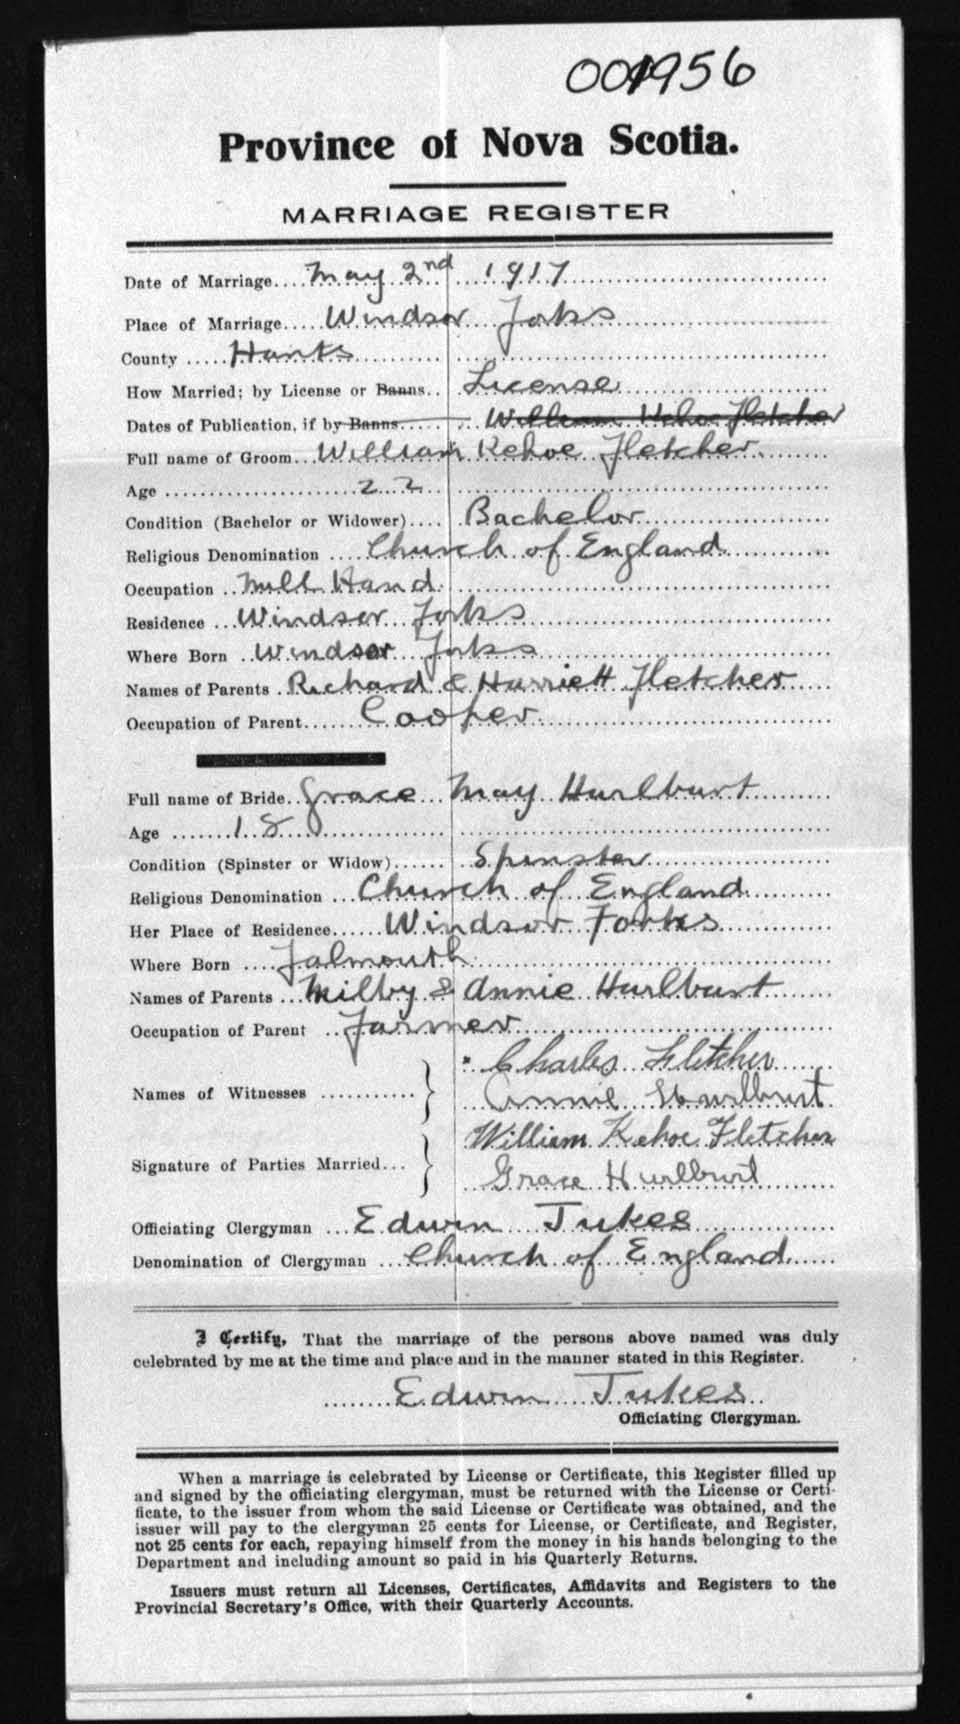 001956
Province of Nova Scotia.
MARRIAGE REGISTER
Date of Marriage....May 2nd 1917
Place of Marriage....Windsor Forks
County .....Hants
How Married; by License or Banns.. License
Dates of Publication, if by Banns...... William Kehoe Fletcher
Full name of Groom...William Kehoe Fletcher
Age ....................22
Condition (Bachelor or Widower).... Bachelor
Religious Denomination ....Church of England
Occupation ..Mill Hand
Residence ...Windsor Forks
Where Born ..Windsor Forks
Names of Parents .Richard & Harriett Fletcher
Occupation of Parent.......Cooper
Full name of Bride..Grace May Hurlburt
Age .......18
Condition (Spinster or Widow)...... Spinster
Religious Denomination ...Church of England
Her Place of Residence......Windsor Forks
Where Born ....Falmouth
Names of Parents ...Milby & Annie Hurlburt
Occupation of Parent ..Farmer
Charles Fletcher
Names of Witnesses ............}
Annie Hurlburt
William Kehoe Fletcher
Signature of Parties Married... }
Grace Hurlburt
Officiating Clergyman ...Edwin Tukes
Denomination of Clergyman ...Church of England
I Certify, That the marriage of the persons above named was duly
celebrated by me at the time and place and in the manner stated in this Register.
Edwin Tukes
Officiating Clergyman.
When a marriage is celebrated by License or Certificate, this Register filled up
and signed by the officiating clergyman, must be returned with the License or Certi-
ficate, to the issuer from whom the said License or Certificate was obtained, and the
issuer will pay to the clergyman 25 cents for License, or Certificate, and Register,
not 25 cents for each, repaying himself from the money in his hands belonging to the
Department and including amount so paid in his Quarterly Returns.
Issuers must return all Licenses, Certificates, Affidavits and Registers to the
Provincial Secretary's Office, with their Quarterly Accounts.